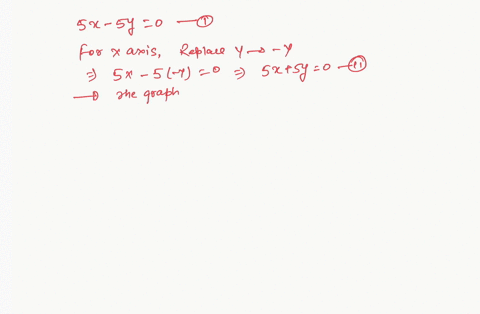 5x - 5y = 0 —ⓘ
For x axis, Replace y → -y
⇒ 5x - 5(-y) = 0 ⇒ 5x + 5y = 0 —ⓘⓘ
→ The graph